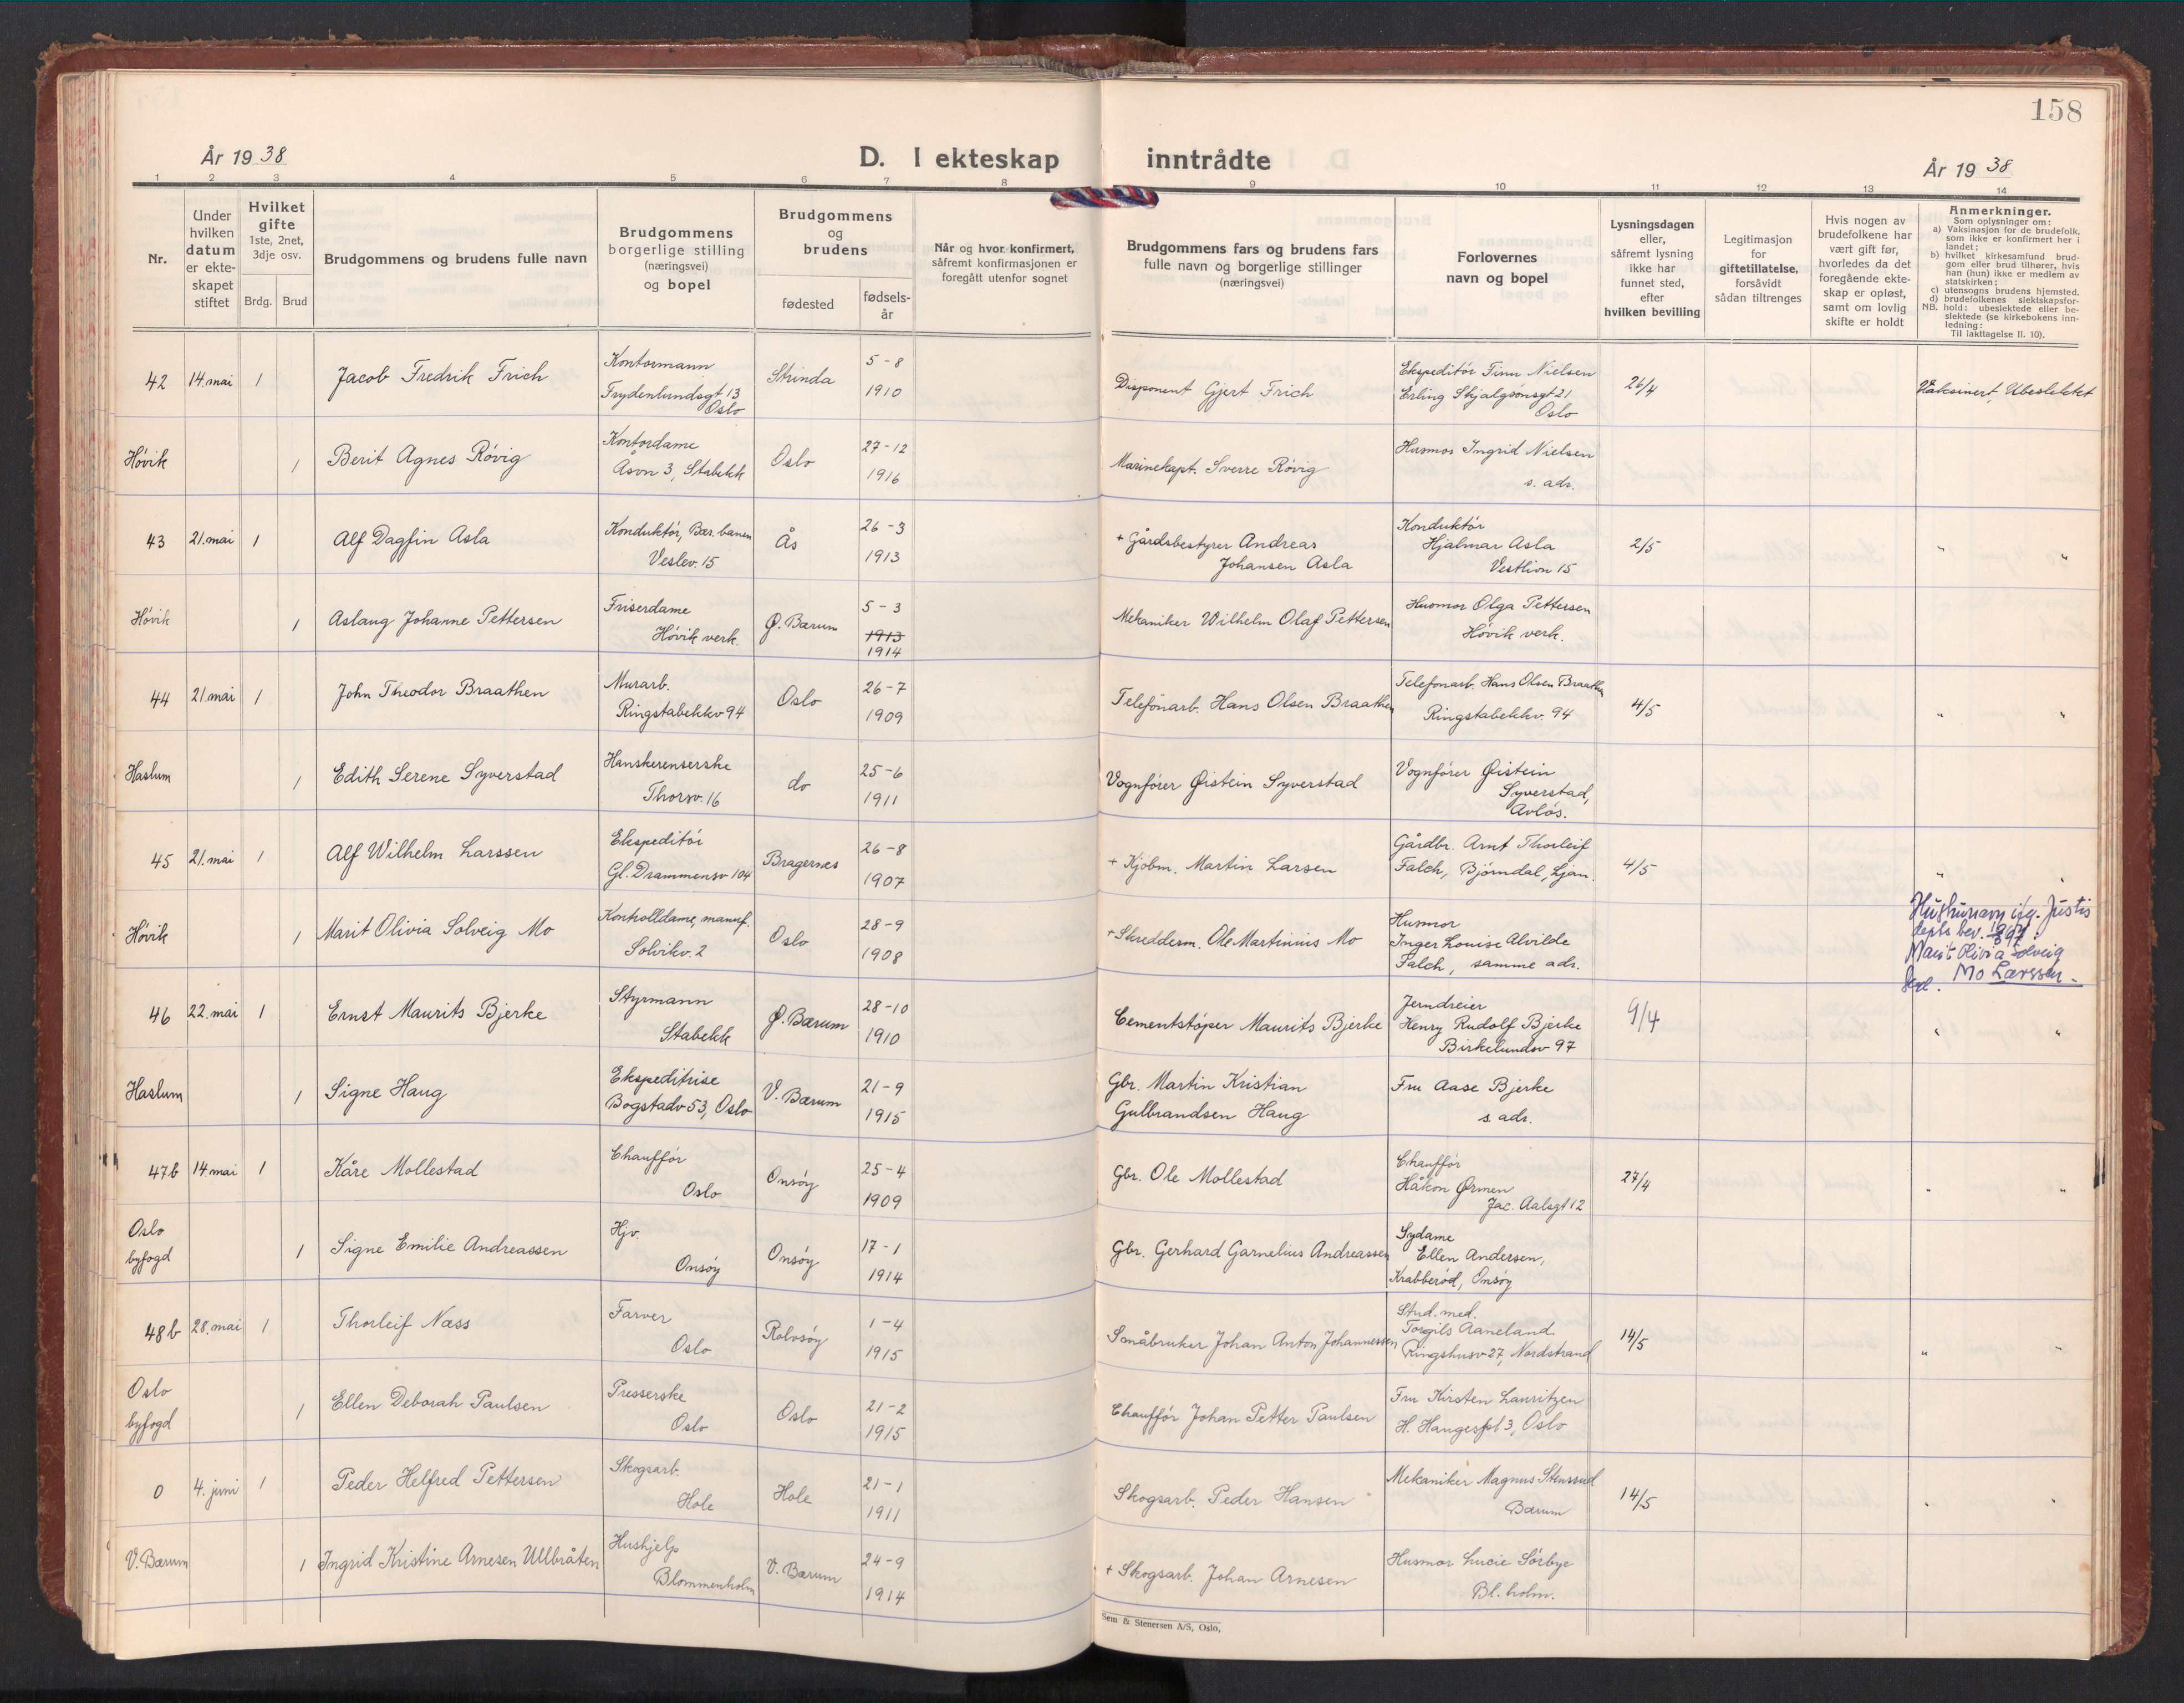 158
År 1938
D. I ekteskap inntrådte
År 1938
1 2 3 4 5 6 7 8 9 10 11 12 13 14
Nr.
Under
hvilken
datum
er ekte-
skapet
stiftet
Hvilket
gifte
1ste, 2net,
3dje osv.
Brdg. Brud
Brudgommens og brudens fulle navn
Brudgommens
borgerlige stilling
(næringsvei)
og bopel
Brudgommens
og
brudens
fødested
fødsels-
år
Når og hvor konfirmert,
såfremt konfirmasjonen er
foregått utenfor sognet
Brudgommens fars og brudens fars
fulle navn og borgerlige stillinger
(næringsvei)
Forlovernes
navn og bopel
Lysningsdagen
eller,
såfremt lysning
ikke har
funnet sted,
efter
hvilken bevilling
Legitimasjon
for
giftetillatelse,
forsåvidt
sådan tiltrenges
Hvis nogen av
brudefolkene har
vært gift før,
hvorledes da det
foregående ekte-
skap er opløst,
samt om lovlig
skifte er holdt
Anmerkninger.
Som oplysninger om:
a) Vaksinasjon for de brudefolk,
som ikke er konfirmert her i
landet;
b) hvilket kirkesamfund brud-
gom eller brud tilhører, hvis
han (hun) ikke er medlem av
statskirken;
c) utensogns brudens hjemsted.
d) brudefolkenes slektskapsfor-
NB. hold: ubeslektede eller be-
slektede (se kirkebokens inn-
ledning:
Til iakttagelse II. 10).
42 14. mai 1 Jacob Fredrik Frich
Kontormann
Frydenlundsgt 13
Oslo
Strinda
5-8
1910
Disponent Gjert Frich
Ekspeditør Finn Nielsen
Erling Skjalgsønsgt 21
Oslo
26/4
Vaksinert, Ubeslektet
Høvik 1 Berit Agnes Røvig
Kontordame
Åsvn 3, Stabekk
Oslo
27-12
1916
Marinekapt. Sverre Røvig
Husmor Ingrid Nielsen
s. adr.
43 21. mai 1 Alf Dagfin Asla
Konduktør, Bær. banen
Veslev. 15
Ås
26-3
1913
+ Gårdsbestyrer Andreas
Johansen Asla
Konduktør
Hjalmar Asla
Vestlivn 15
2/5
" "
Høvik 1 Aslaug Johanne Pettersen
Friserdame
Høvik verk.
Ø. Bærum
5-3
1913
1914
Mekaniker Wilhelm Olaf Pettersen
Husmor Olga Pettersen
Høvik verk.
44 21. mai 1 John Theodor Braathen
Murarb.
Ringstabekkv 94
Oslo
26-7
1909
Telefonarb. Hans Olsen Braathen
Telefonarb. Hans Olsen Braathen
Ringstabekkv. 94
4/5
" "
Haslum 1 Edith Serene Syverstad
Hanskerenserske
Thorsv. 16
do
25-6
1911
Vognfører Øistein Syverstad
Vognfører Øistein
Syverstad,
Avløs.
45 21. mai 1 Alf Wilhelm Larssen
Ekspeditør
Gl. Drammensv 104
Bragernes
26-8
1907
+ Kjøbm. Martin Larsen
Gårdbr. Arnt Thorleif
Falch, Bjørndal, Ljan.
4/5
" "
Høvik 1 Marit Olivia Solveig Mo
Kontrolldame, manuf.
Solvikv. 2
Oslo
28-9
1908
+ Skredderm. Ole Martinius Mo
Husmor
Inger Louise Alvilde
Falch, samme adr.
Justis
depts bev.
Marit Olivia Solveig
Mo Larssen
46 22. mai 1 Ernst Maurits Bjerke
Styrmann
Stabekk
Ø. Bærum
28-10
1910
Cementstøper Maurits Bjerke
Jerndreier
Henry Rudolf Bjerke
Birkelundsv 97
9/4
" "
Haslum 1 Signe Haug
Ekspeditrise
Bogstadv 53, Oslo
V. Bærum
21-9
1915
Gbr. Martin Kristian
Gulbrandsen Haug
Fru Aase Bjerke
s. adr.
47b 14. mai 1 Kåre Mollestad
Chauffør
Oslo
Onsøy
25-4
1909
Gbr. Ole Mollestad
Chauffør
Håkon Ørmen
Jac. Aalsgt 12
27/4
" "
Oslo
byfogd
1 Signe Emilie Andreassen
Hjv.
Onsøy
Onsøy
17-1
1914
Gbr. Gerhard Garnelius Andreassen
Sydame
Ellen Andersen,
Krabberød, Onsøy
48b 28. mai 1 Thorleif Næss
Farver
Oslo
Rolvsøy
1-4
1915
Småbruker Johan Anton Johannessen
Stud. med.
Torgils Aaneland
Ringshusv 27, Nordstrand
14/5
" "
Oslo
byfogd
1 Ellen Deborah Paulsen
Presserske
Oslo
Oslo
21-2
1915
Chauffør Johan Petter Paulsen
Fru Kirsten Lauritzen
H. Haugespl 3, Oslo
0 4. juni 1 Peder Helfred Pettersen
Skogsarb.
Hole
Hole
21-1
1911
Skogsarb. Peder Hansen
Mekaniker Magnus Stensrud
Bærum
14/5
" "
V. Bærum 1 Ingrid Kristine Arnesen Ullbråten
Hushjelp
Blommenholm
V. Bærum
24-9
1914
+ Skogsarb. Johan Arnesen
Husmor Lucie Sørbye
Bl. holm.
Sem & Stenersen A/S, Oslo.